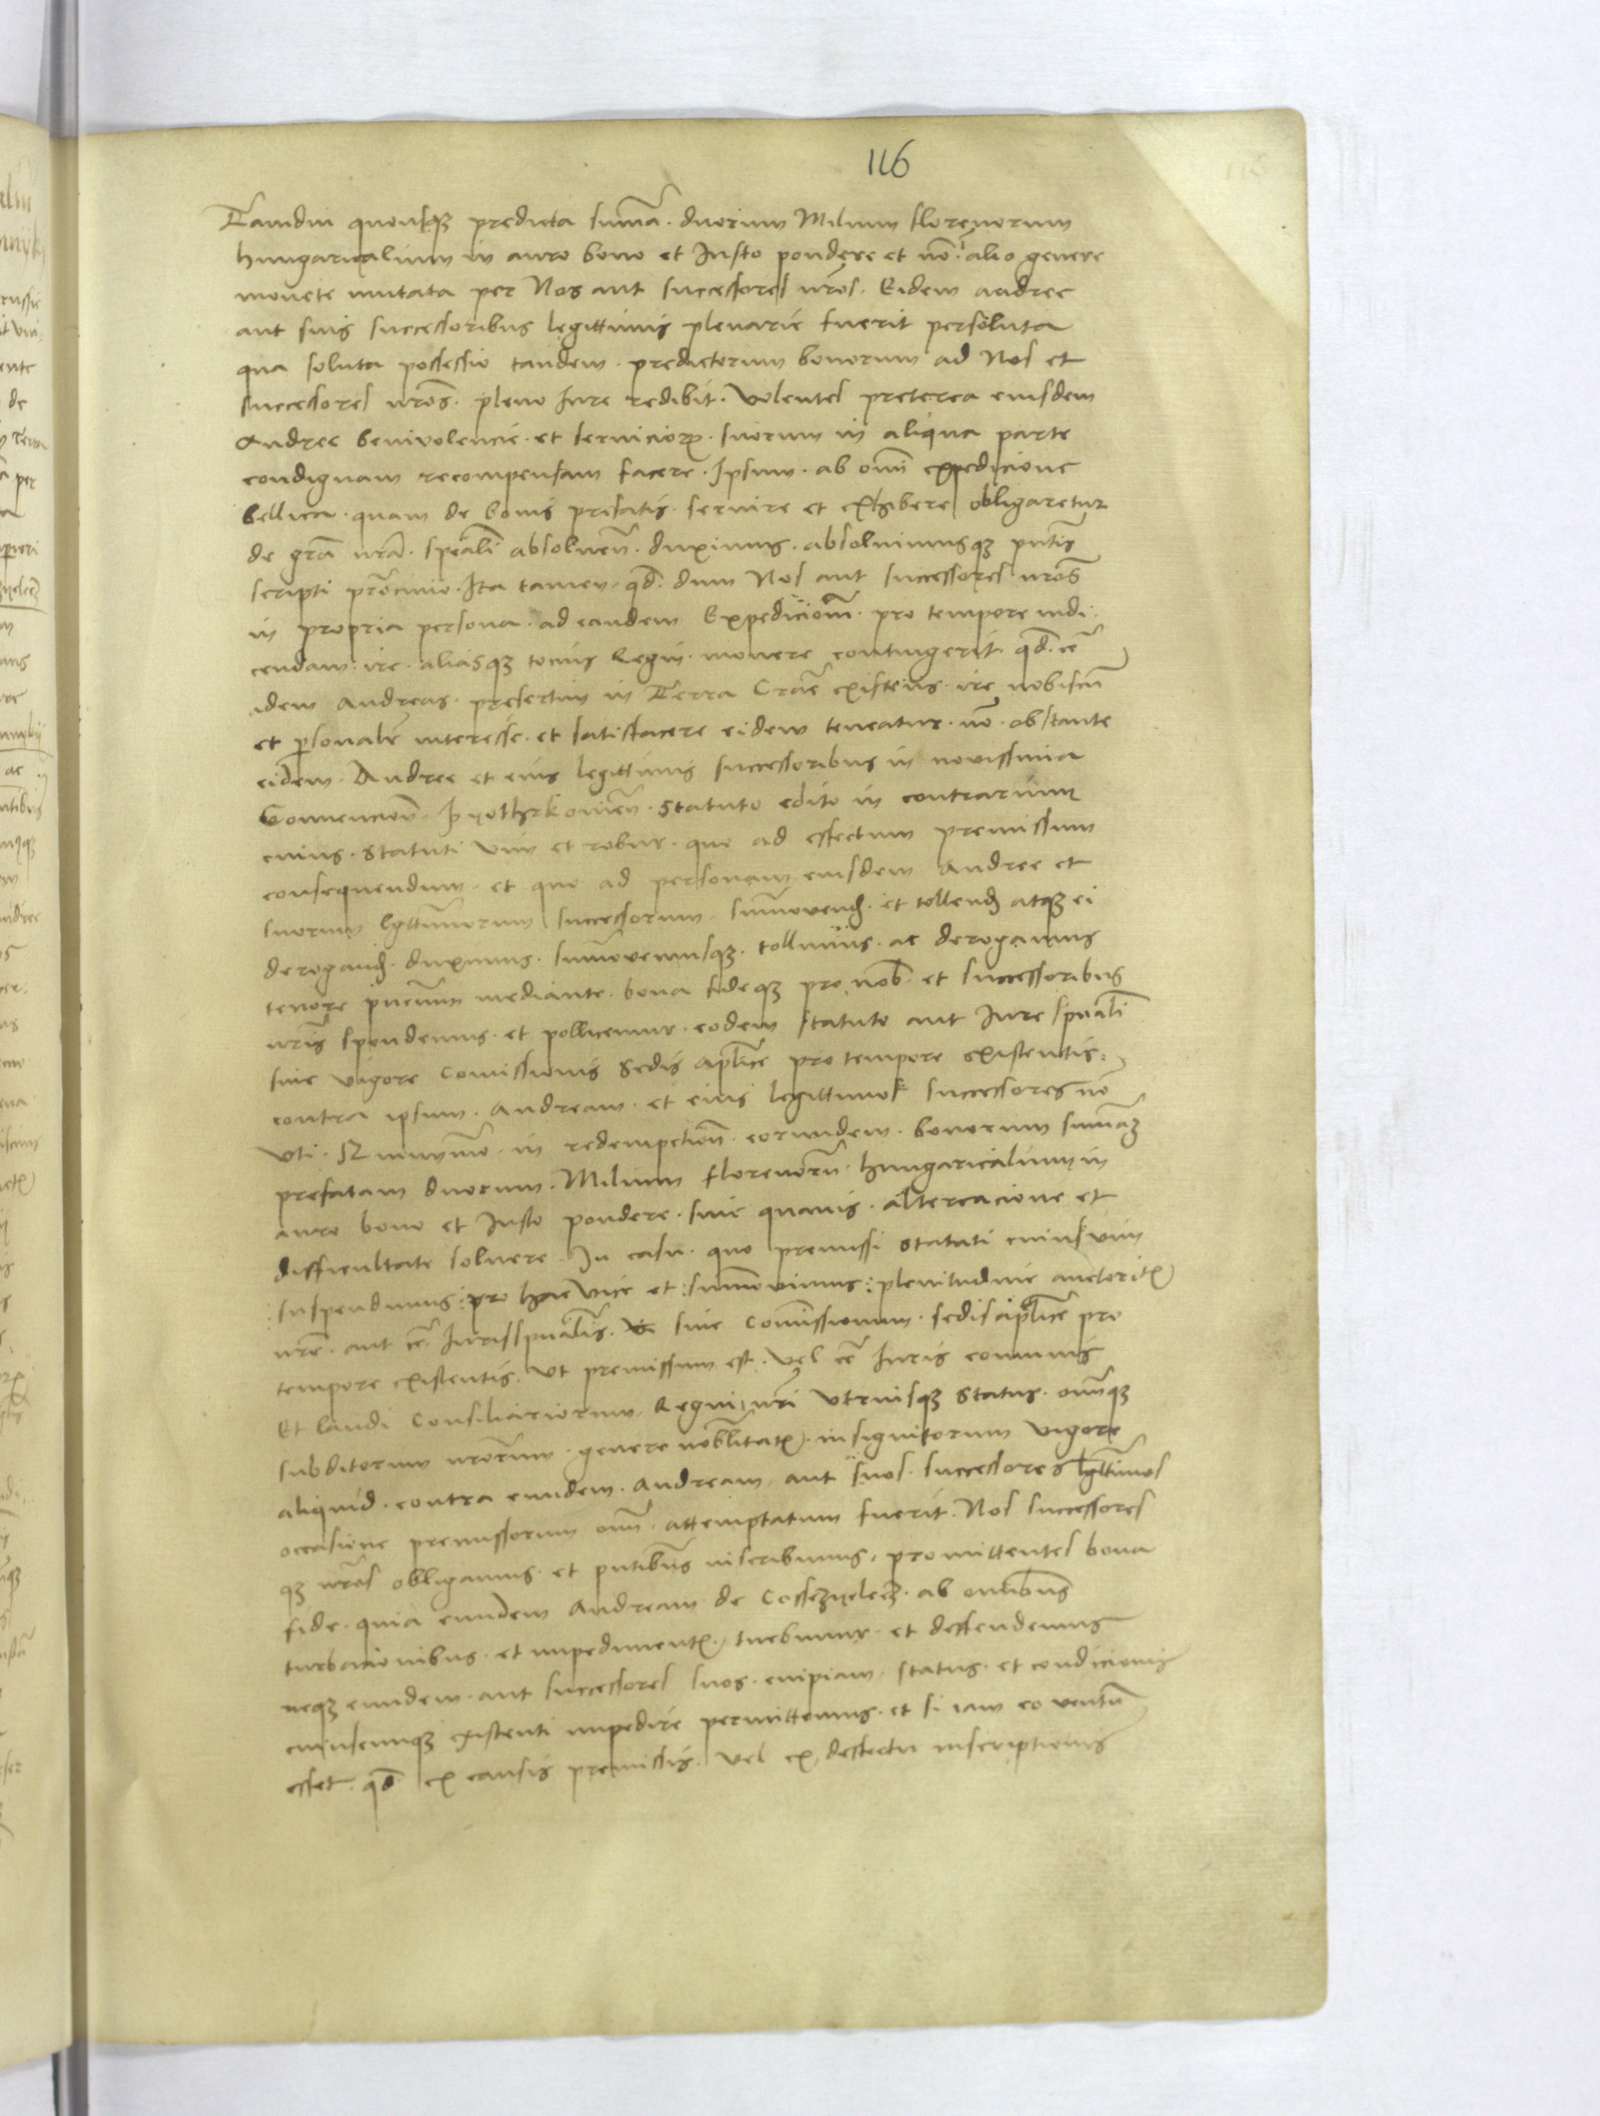 116
Tamdiu quousq3 predicta summa. duorum Milium florenorum
hungaricalium in auro bono et Justo pondere et nō i alio genere
monete mutata per Nos aut successores nr̄os. Eidem andree
aut suis successoribus legittimis plenarie fuerit persoluta
qua soluta possessio tandem. predictorum bonorum ad Nos et
successores nr̄os. pleno Jure redibit. Volentes preterea eiusdem
Andree benivolencie. et servicior̨. suorum in aliqua parte
condignam recompensam facere. Ipsum. ab om̄i expedicione
bellica. quam de bonis prefatis. servire et exhibere obligaretur
de gr̄a nr̄a. spēali absoluen̄. duximus. absoluimusq3 pn̄tis
scripti pr̄ocinio. Ita tamen. qd̄. dum Nos aut successores nr̄os
in propria persona. ad eandem Expedicionē. pro tempore indi
cendam. ire. aliasq3 tocius Regni. monere contingerit. qd̄. ex̄
idem Andreas. presertim in Terra Crāc existens. ire nobiscū
et p̄sonalr̄ interesse. et satisfacere eidem teneatur. nō. obstante
eidem. Andree et eius legittimis successoribus in novissima
Convencion̄. Pyothrkovien̄. Statuto edito in contrarium
cuius. Statuti vim et robur. quo ad effectum premissum
consequendum. et quo ad personam eiusdem Andree et
suorum lḡttimorum successorum. summovend̄. et tollend̄ atq3 ei
derogand̄. duximus. summovemusq3. tollimus. ac derogamus
tenore pn̄cium mediante. bona fideq3 pro nob̄ et successoribus
nr̄is spondemus. et pollicemur. eodem statuto aut Jure spūali
sive vigore Comissionis Sedis ap̄lice pro tempore existentis.
contra ipsum. Andream. et eius legittimos successores nō
uti. S2 minimo in redempcion̄. eorundem. bonorum summam
prefatam duorum. Milium florenorū. hungaricalium in
auro bono et Justo pondere. sine quavis. altercacione et
difficultate solvere. In casu. quo premissi Statuti cuius vim
suspendimus: pro hac vice et: summovimus: plenitudine auctorit̄
nr̄e. aut ex̄ Juris spūalis. sive Comissionum. sedis ap̄lice pro
tempore existentis. ut premissum est. vel ex̄ Juris communis
Et laudi Consiliariorum. Regni nr̄i utriusq3 status. omniq3
subditorum nr̄orum. genere nobilitat̄. insignitorum vigore
aliquid. contra eundem. Andream aut suos. successores lḡttimos
occasione premissorum om̄. attemptatum fuerit. Nos successores
q3 nr̄os obligamus. et pn̄tibus inscribimus. promittentes bona
fide. quia eundem Andream de Cosczyelecz. ab om̄ibus
turbacionibus. et impediment̄. tuebimur. et deffendemus
neq3 eundem. aut successores suos. cuipiam. status. et condicionis
cuiuscunq3 existenti impedire permittemus. et si iam eo ventū
esset. qd̄ ex causis premissis. vel ex deffectu inscriptionis